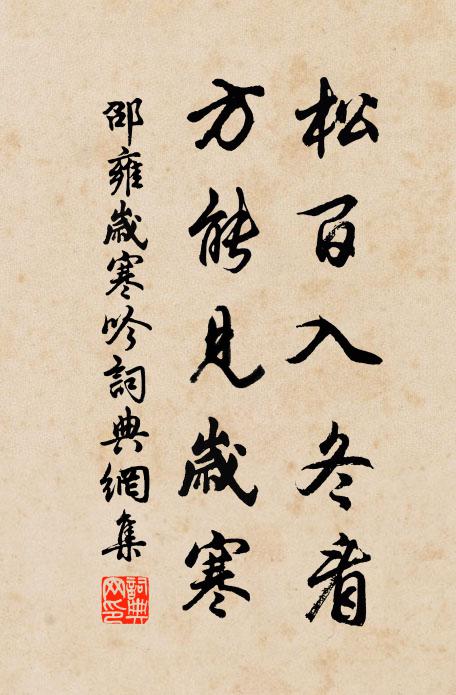 松百入冬看
方能見歲寒
邵雍歲寒吟詞典網集
詞典网印